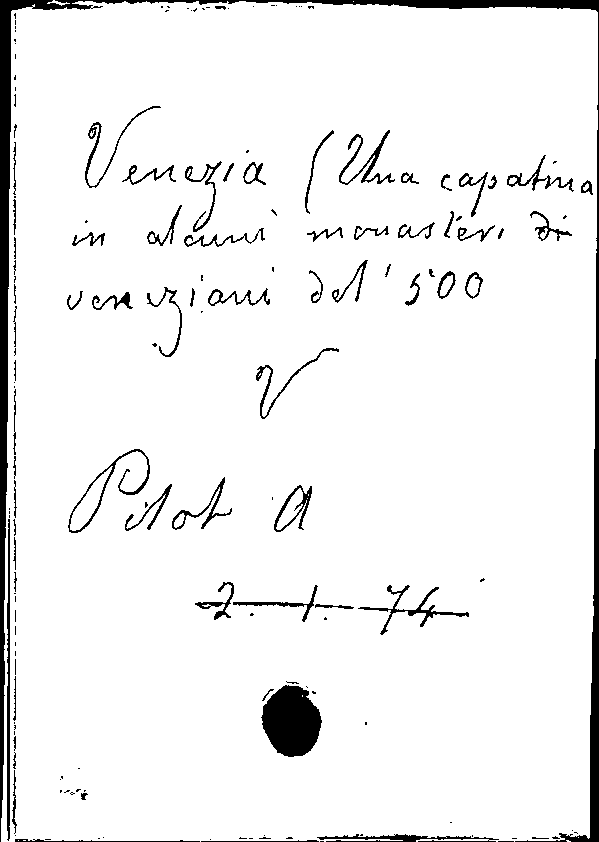 Venezia (Una capatina
in alcuni monasteri di
veneziani del '500
V
Pilot A
2. 1. 74